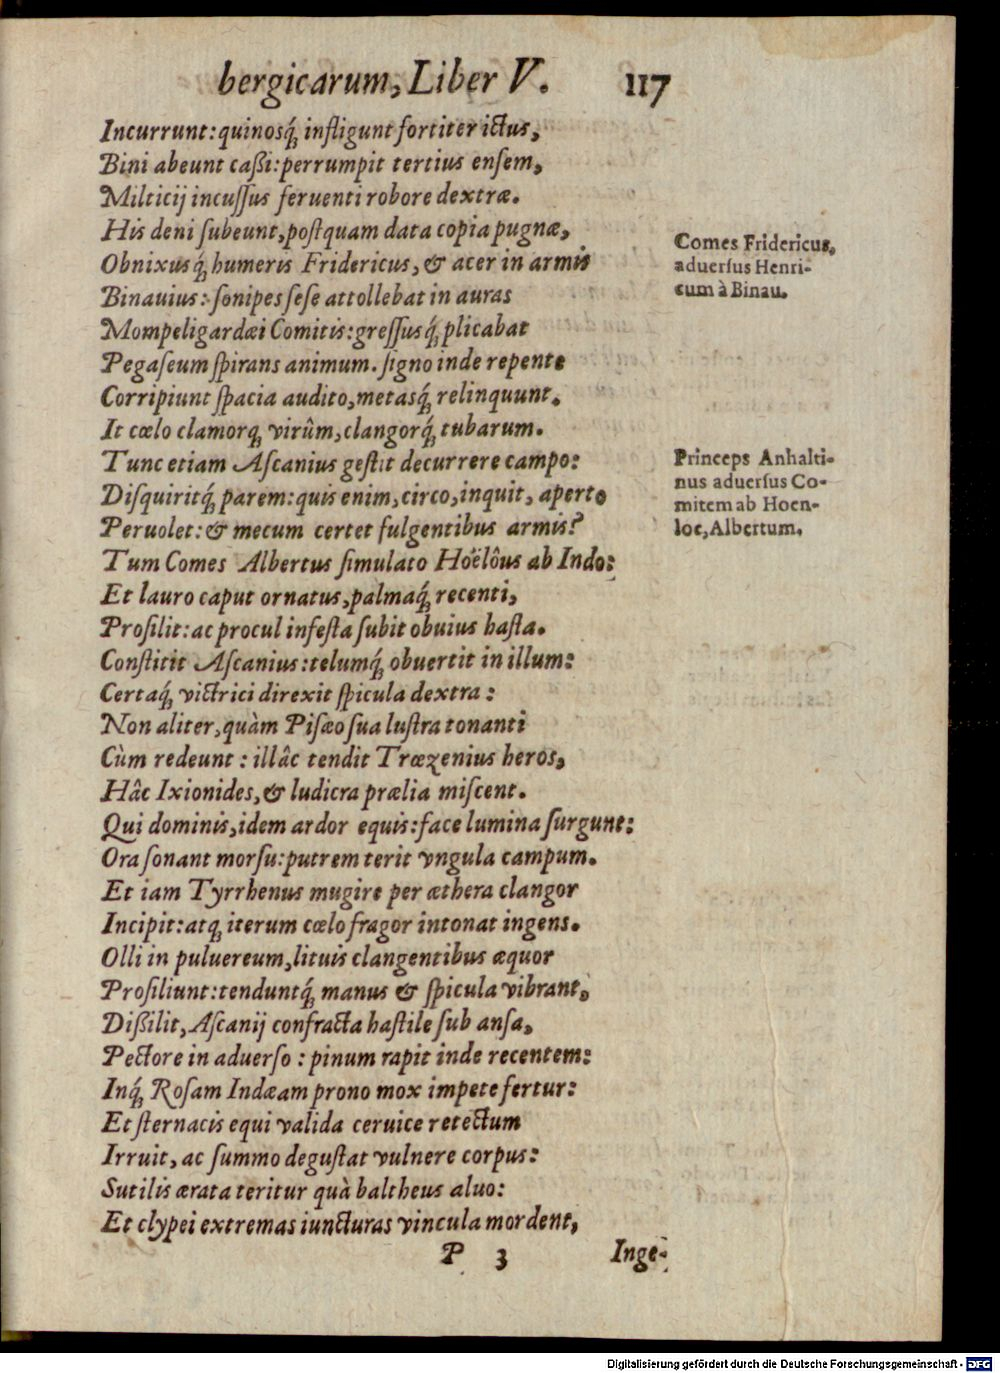 bergicarum, Liber V. 117
Incurrunt: quinosq́; infligunt fortiter ictus,
Bini abeunt caßi: perrumpit tertius enſem,
Milticij incuſſus feruenti robore dextræ.
His deni ſubeunt, poſtquam data copia pugnæ,
Obnixusq́; humeris Fridericus, & acer in armis
Binauius: ſonipes ſeſe attollebat in auras
Mompeligardæi Comitis: greſſusq́; plicabat
Pegaſeum ſpirans animum. ſigno inde repente
Corripiunt ſpacia audito, metasq́; relinquunt.
It cœlo clamorq; virûm, clangorq́; tubarum.
Tunc etiam Aſcanius geſtit decurrere campo:
Diſquiritq́; parem: quis enim, circo, inquit, aperto
Peruolet: & mecum certet fulgentibus armis?
Tum Comes Albertus ſimulato Hoëlôus ab Indo:
Et lauro caput ornatus, palmaq́; recenti,
Proſilit: ac procul infeſta ſubit obuius haſta.
Conſtitit Aſcanius: telumq́; obuertit in illum:
Certaq́; victrici direxit ſpicula dextra:
Non aliter, quàm Piſæo ſua luſtra tonanti
Cùm redeunt: illâc tendit Træzenius heros,
Hâc Ixionides, & ludicra prælia miſcent.
Qui dominis, idem ardor equis: face lumina ſurgunt:
Ora ſonant morſu: putrem terit vngula campum.
Et iam Tyrrhenus mugire per æthera clangor
Incipit: atq; iterum cœlo fragor intonat ingens.
Olli in puluereum, lituis clangentibus æquor
Proſiliunt: tenduntq́; manus & ſpicula vibrant,
Dißilit, Aſcanij confracta haſtile ſub anſa,
Pectore in aduerſo: pinum rapit inde recentem:
Inq́; Roſam Indæam prono mox impete fertur:
Et ſternacis equi valida ceruice retectum
Irruit, ac ſummo deguſtat vulnere corpus:
Sutilis ærata teritur quà baltheus aluo:
Et clypei extremas iuncturas vincula mordent,
P 3 Inge-
Comes Fridericus,
aduerſus Henri-
cum à Binau.
Princeps Anhalti-
nus aduerſus Co-
mitem ab Hoen-
loe, Albertum.
Digitalisierung gefördert durch die Deutsche Forschungsgemeinschaft - DFG